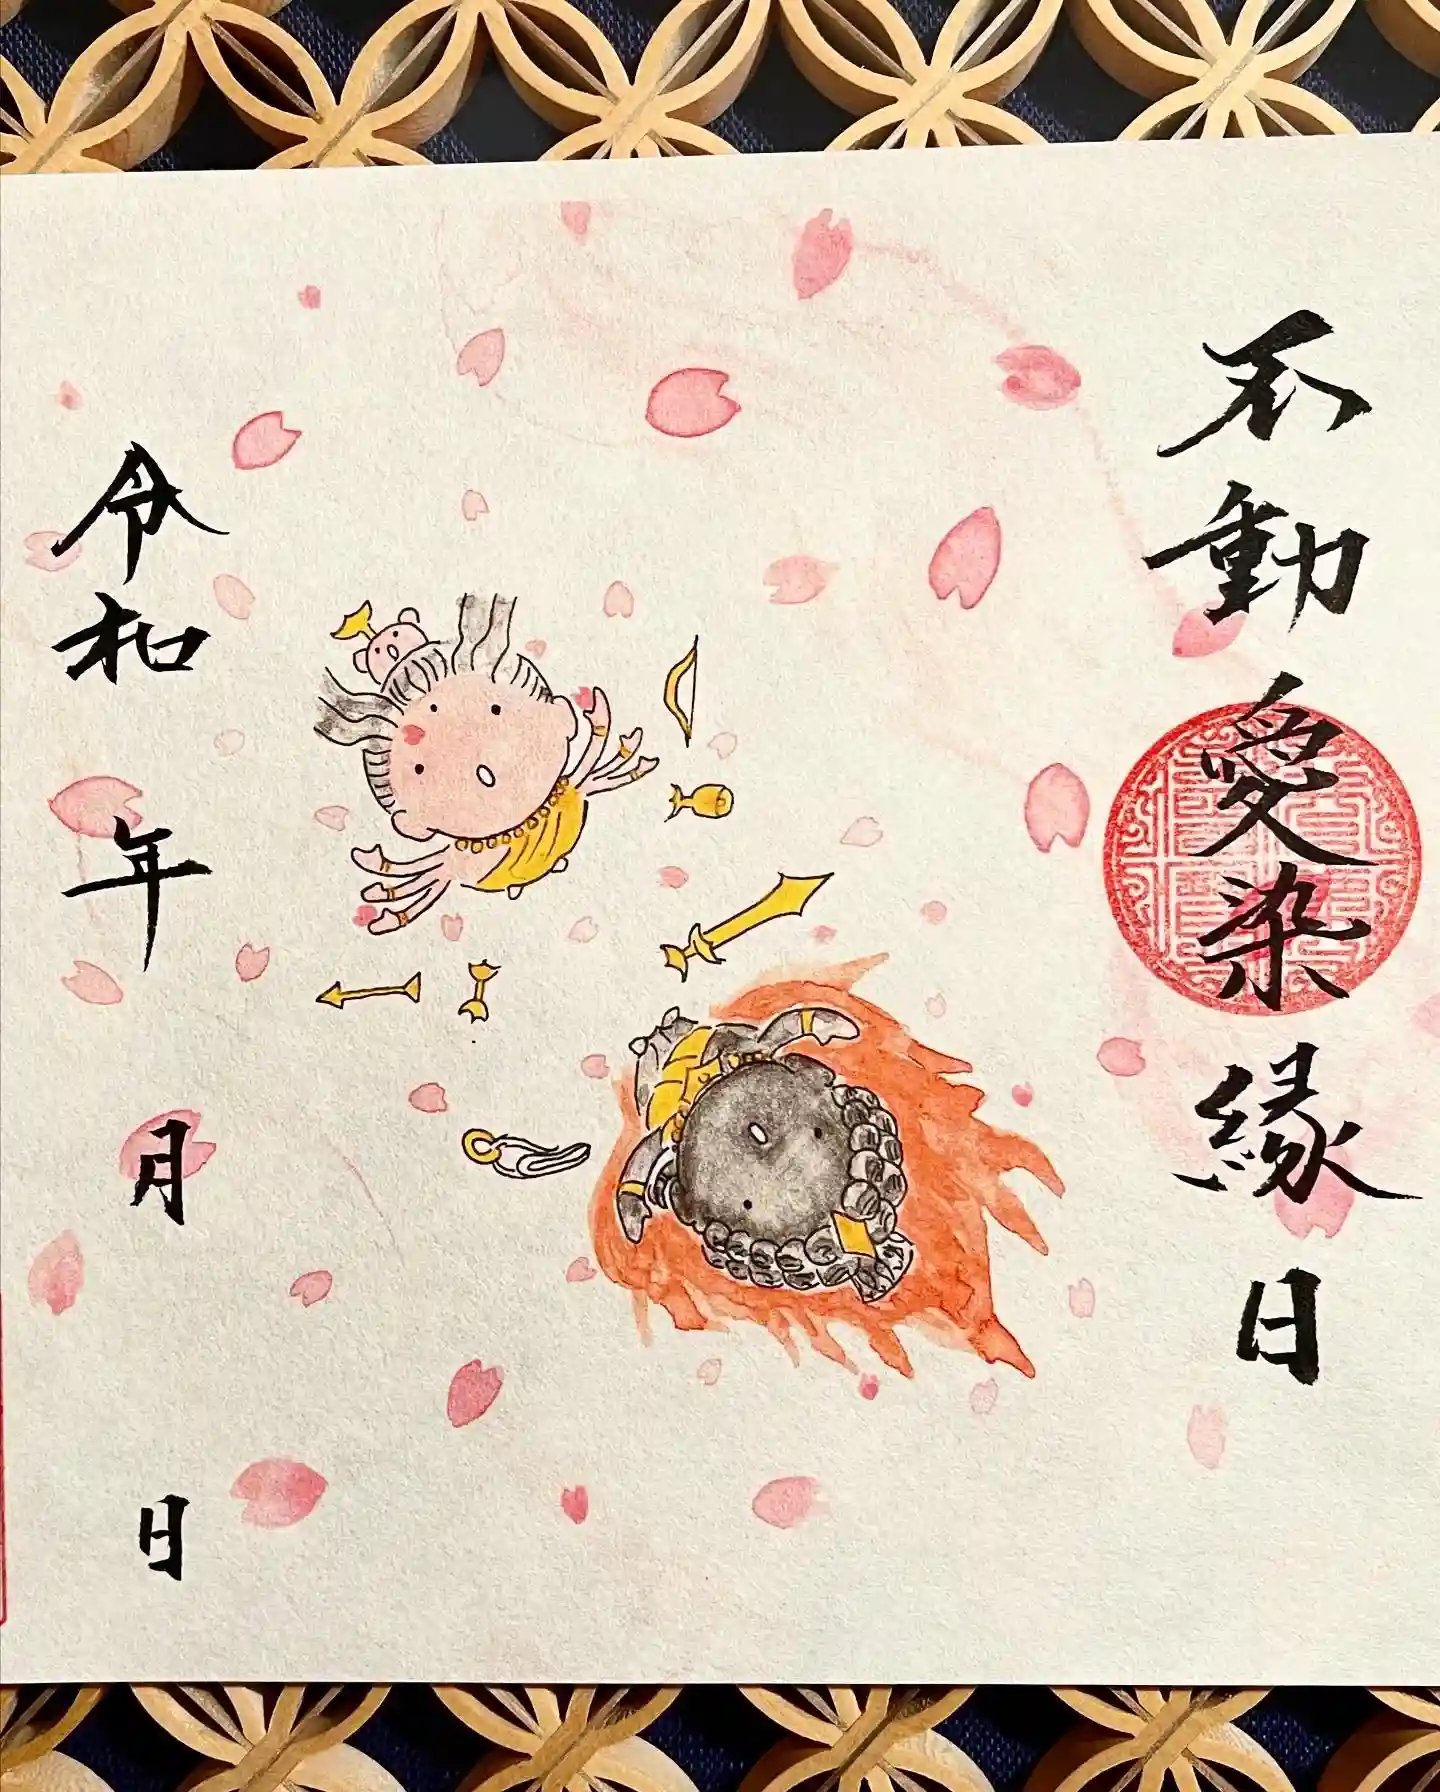 不動愛染縁日
令和 年 月 日